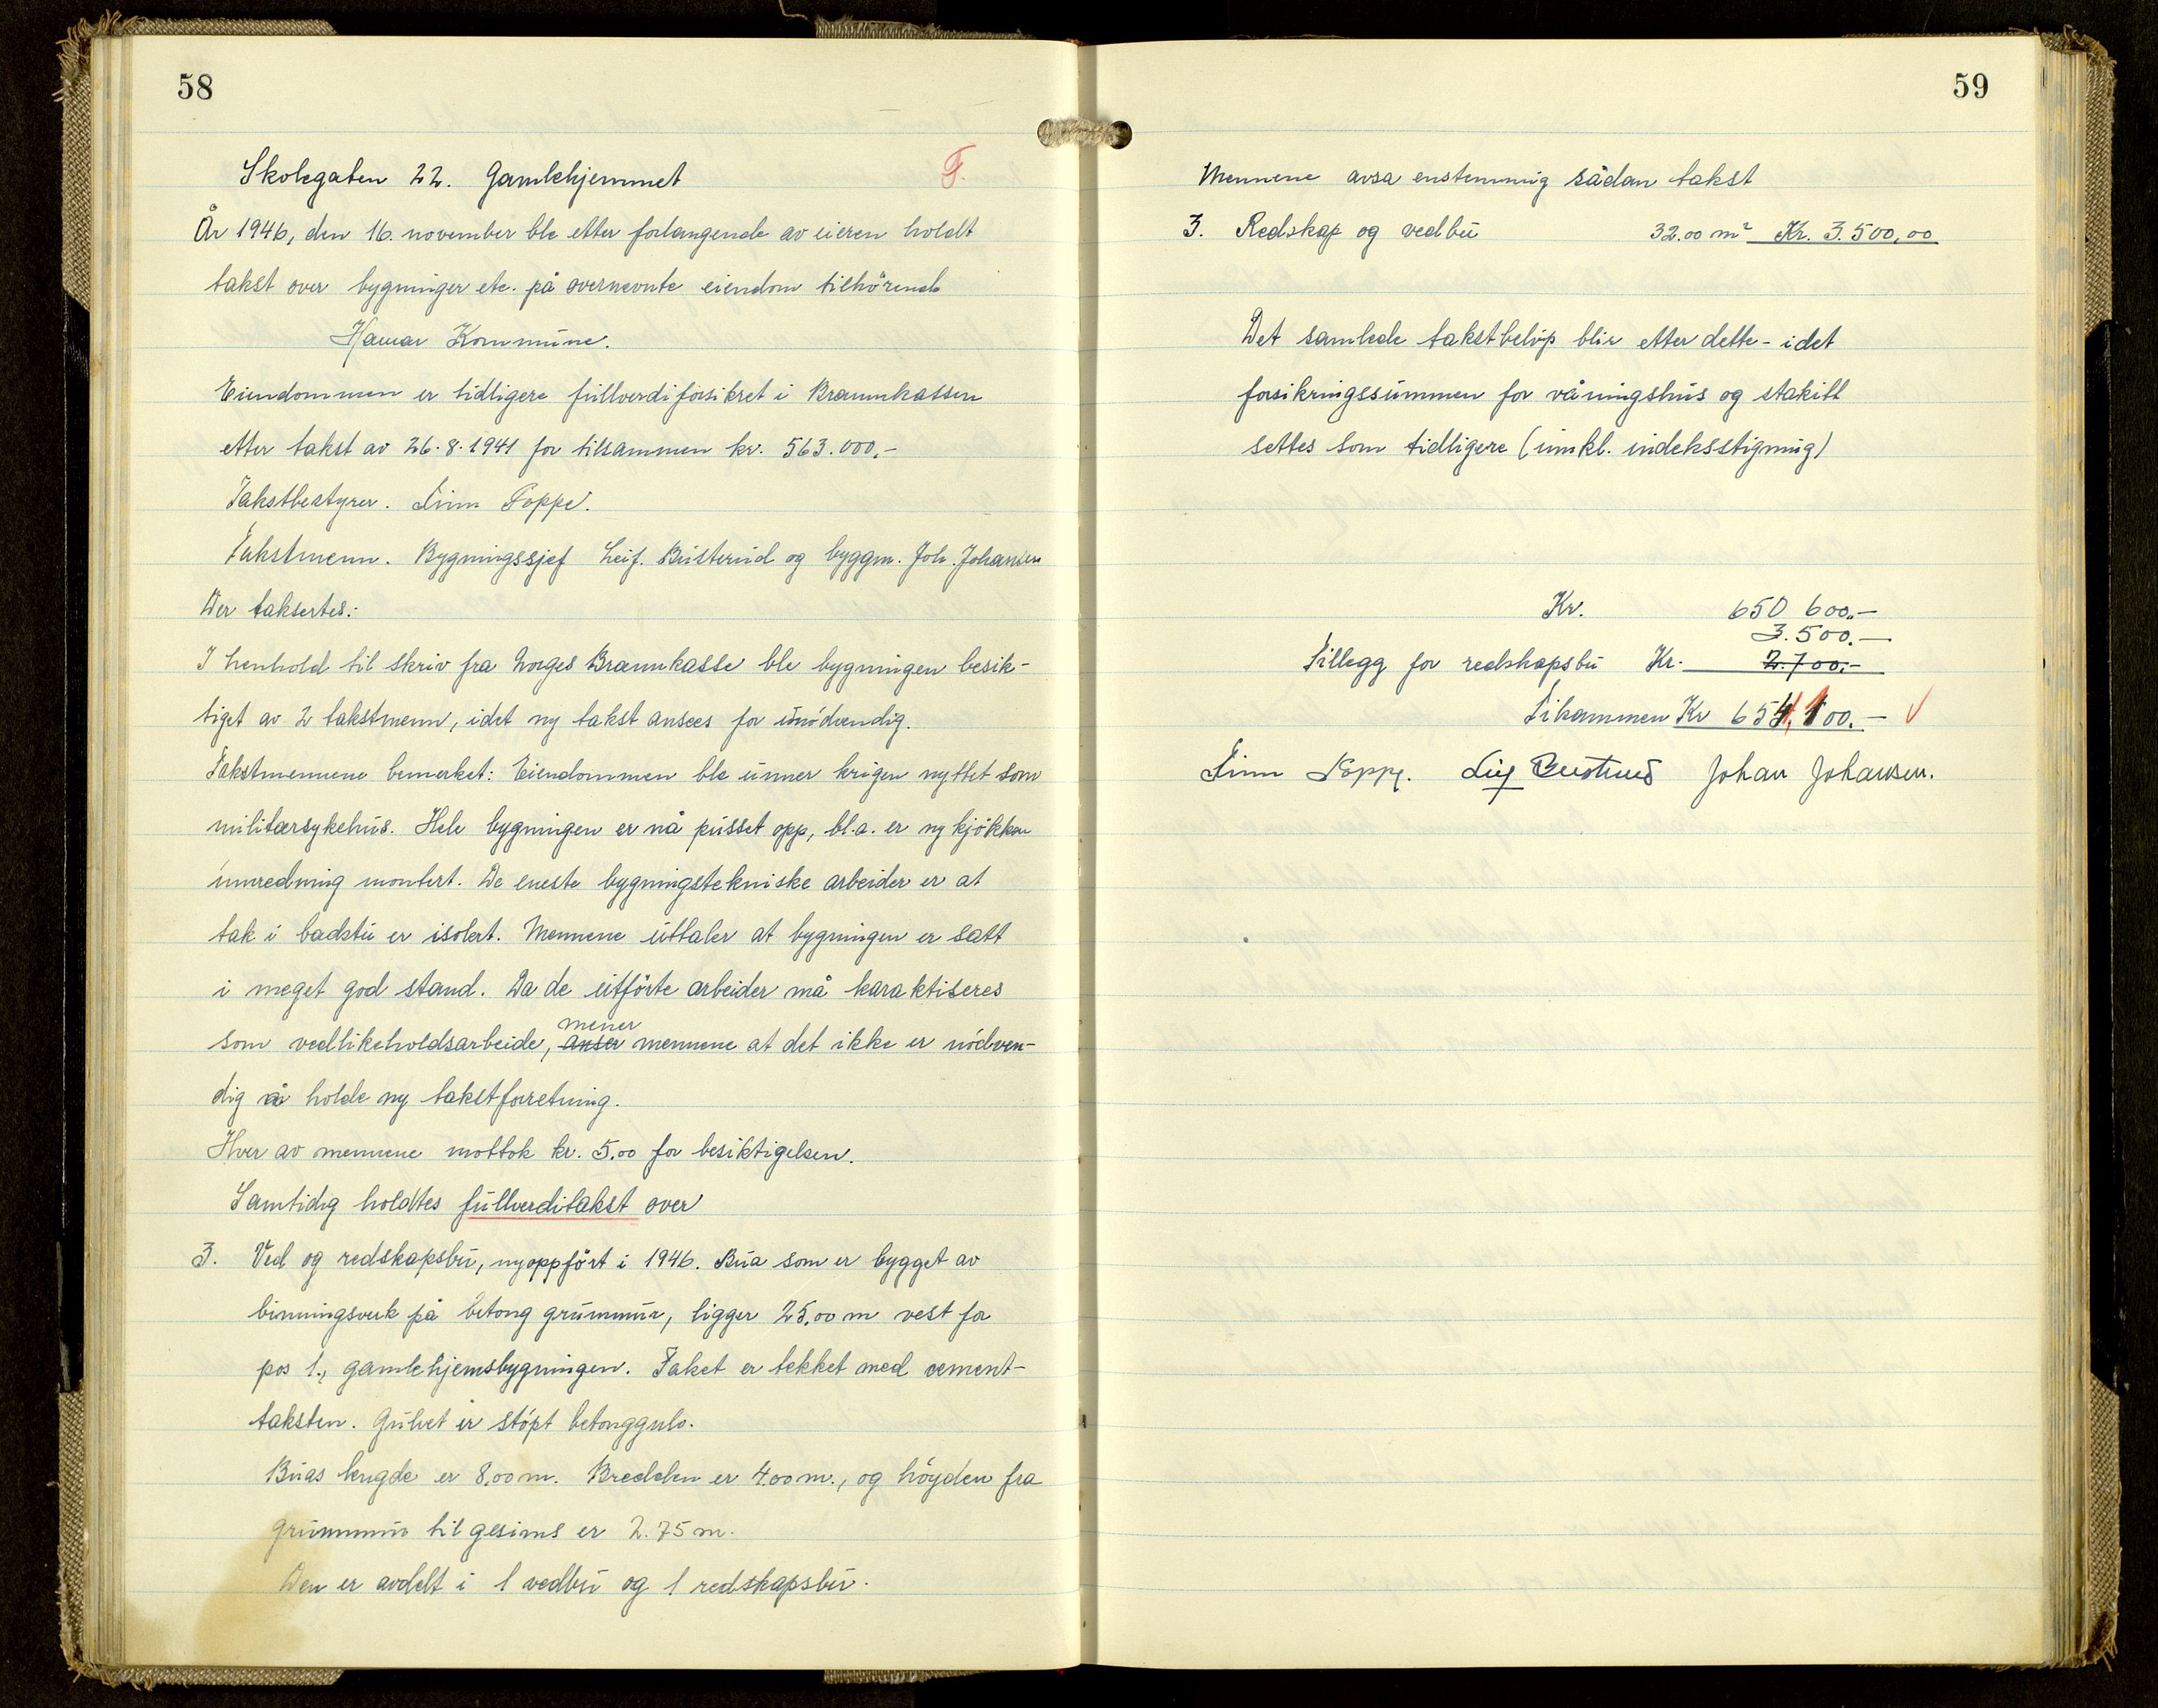 58
Skolegaten 22. Gamlehjemmet F.
År 1946, den 16. november ble etter forlangende av eieren holdt
takst over bygninger etc. på overnevnte eiendom tilhörende
Hamar Kommune.
Eiendommen er tidligere fullverdiforsikret i Brannkassen
etter takst av 26.8.1941 for tilsammen kr. 563.000,-
Takstbestyrer. Finn Poppe.
Takstmenn. Bygningssjef Leif. Busterud og byggm. Joh. Johansen
Der taksertes:
I henhold til skriv fra Norges Brannkasse ble bygningen besik-
tiget av 2 takstmenn, idet ny takst ansees for unödvendig.
Takstmennene bemerket: Eiendommen ble unner krigen nyttet som
militærsykehus. Hele bygningen er nå pusset opp, bl.a. er ny kjökken
innredning montert. De eneste bygningstekniske arbeider er at
tak i badstu er isolert. Mennene uttaler at bygningen er satt
i meget god stand. Da de utförte arbeider må karaktiseres
mener
som vedlikeholdsarbeide, anser mennene at det ikke er nödven-
dig å holde ny takstforretning.
Hver av mennene mottok kr. 5.00 for besiktigelsen.
Samtidig holdtes fullverditakst over
3. Ved og redskapsbu, nyoppfört i 1946. Bua som er bygget av
binningsverk på betong grunnmur, ligger 25,00 m vest for
pos 1., gamlehjemsbygningen. Taket er tekket med cement-
taksten. Gulvet er stöpt betonggulv.
Buas lengde er 8,00 m. Bredden er 4.00 m., og höyden fra
grunnmur til gesims er 2.75 m.
Den er avdelt i 1 vedbu og 1 redskapsbu.
59
Mennene avsa enstemmig sådan takst
3. Redskap og vedbu 32.00 m² Kr. 3.500,00
Det samlede takstbelöp blir etter dette - idet
forsikringssummen for våningshus og stakitt
settes som tidligere (innkl. indeksstigning)
Kr. 650 600.-
3.500.-
Tillegg for redskapsbu Kr. 2.700.-
Tilsammen Kr 654.100.- √
Finn Poppe. Leif Busterud Johan Johansen.